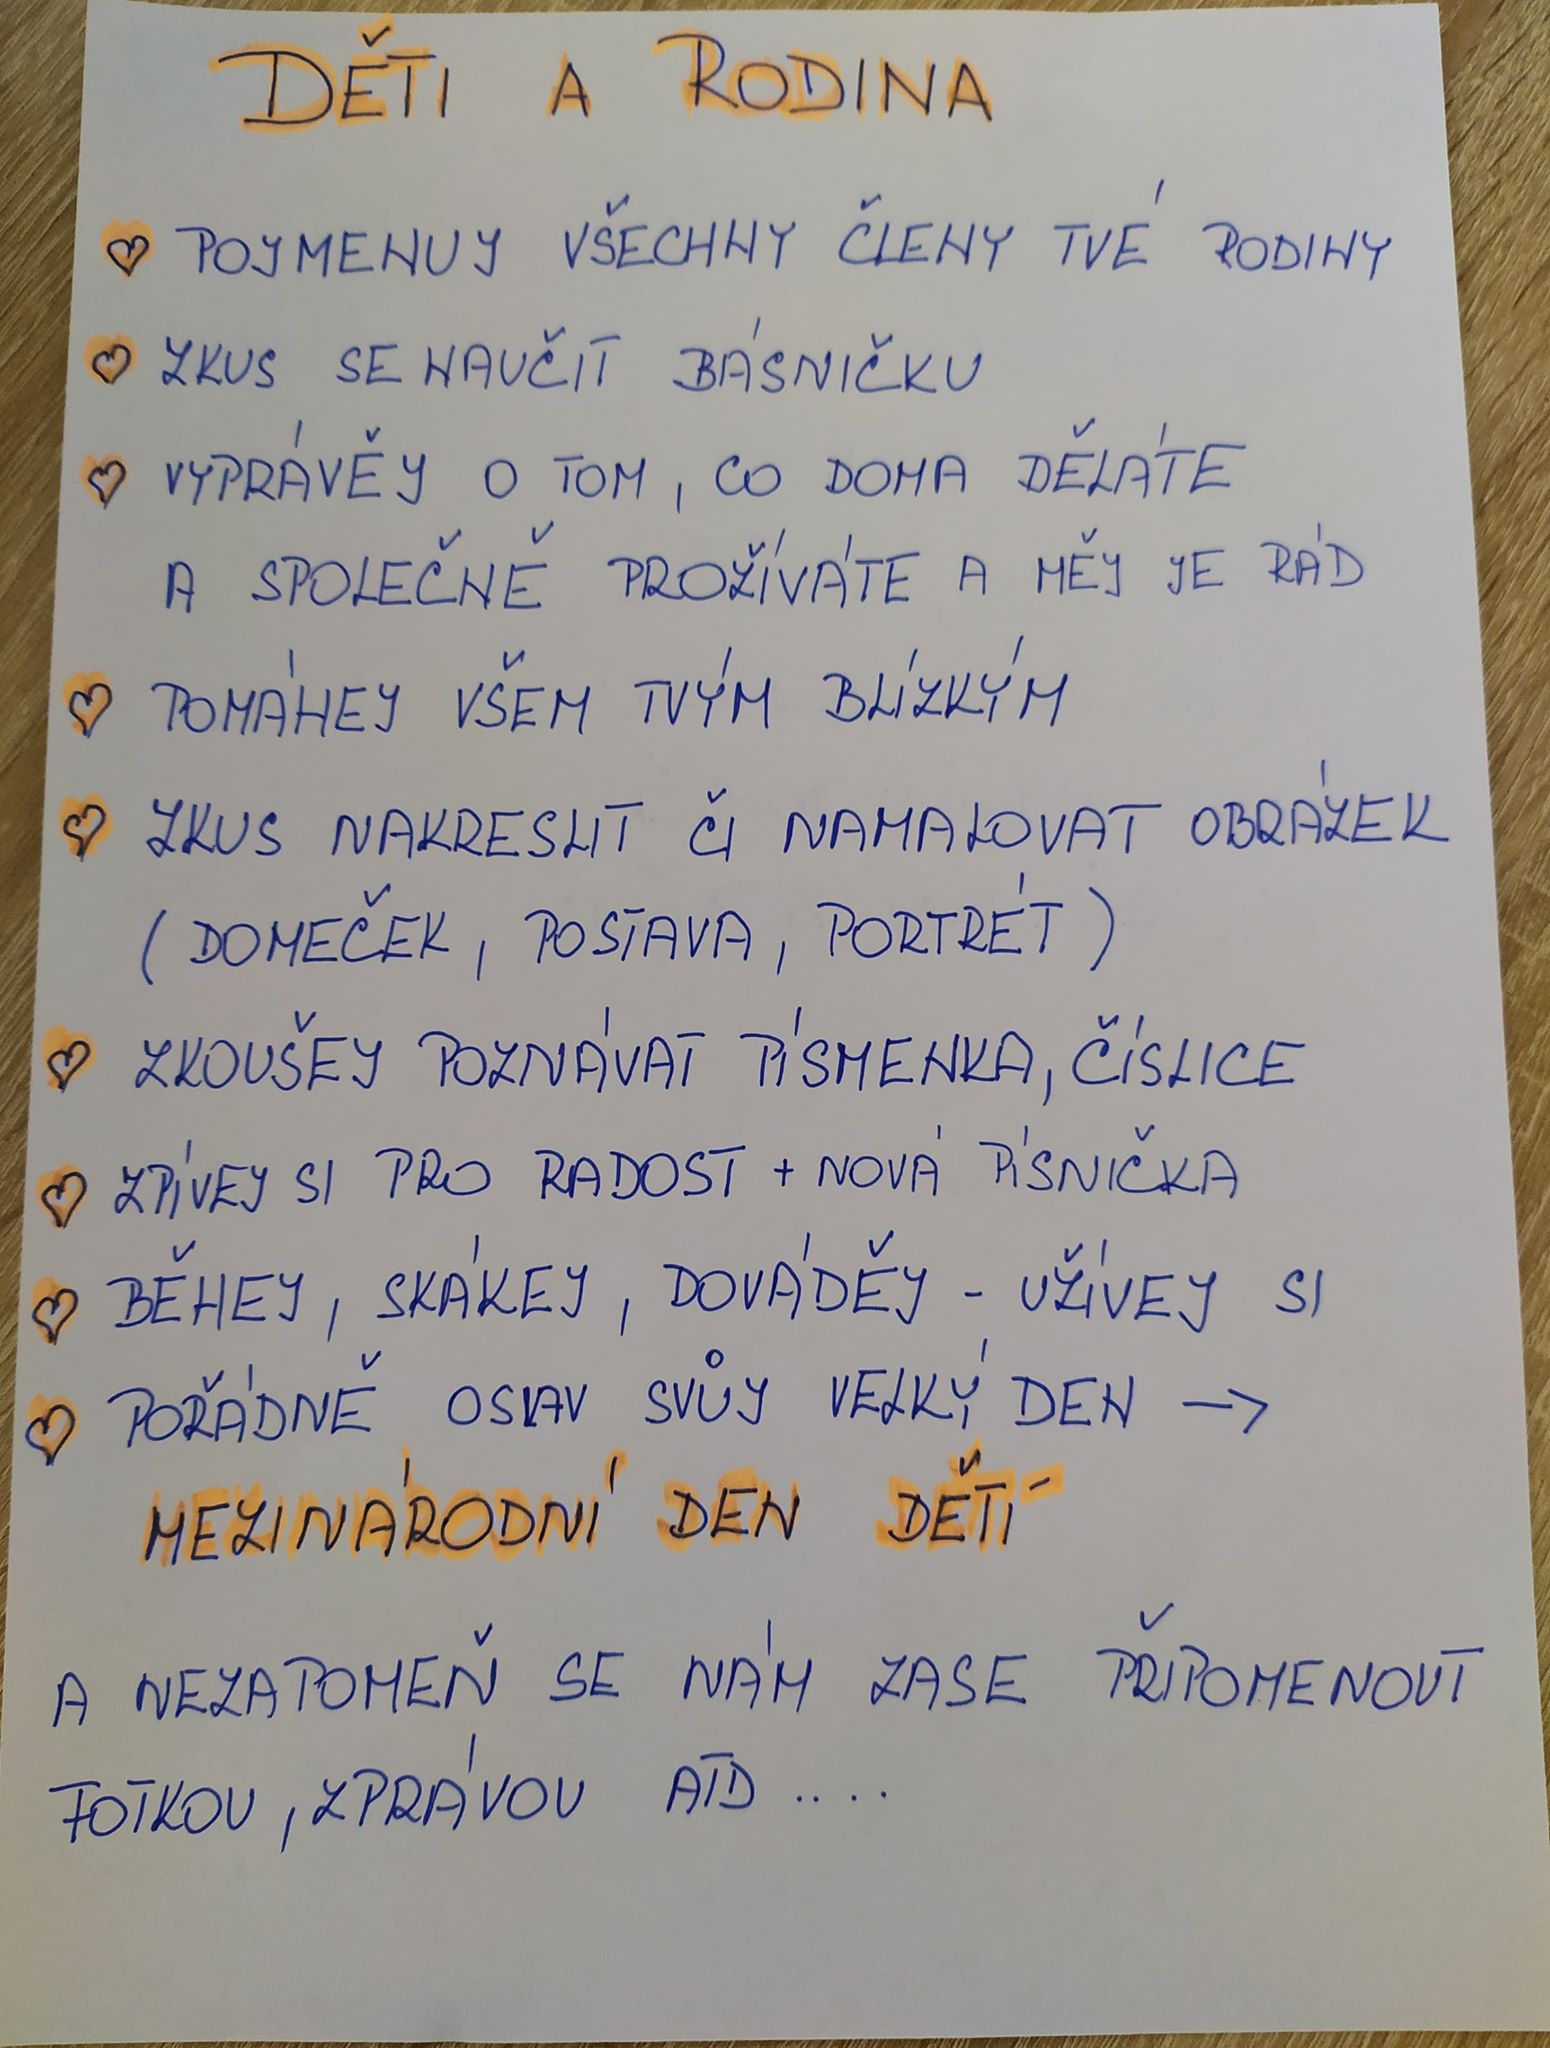 DĚTI A RODINA
♡ POJMENUJ VŠECHNY ČLENY TVÉ RODINY
♡ ZKUS SE NAUČIT BÁSNIČKU
♡ VYPRÁVĚJ O TOM, CO DOMA DĚLÁTE
A SPOLEČNĚ PROŽÍVÁTE A MĚJ JE RÁD
♡ POMÁHEJ VŠEM TVÝM BLÍZKÝM
♡ ZKUS NAKRESLIT ČI NAMALOVAT OBRÁZEK
(DOMEČEK, POSTAVA, PORTRÉT)
♡ ZKOUŠEJ POZNÁVAT PÍSMENKA, ČÍSLICE
♡ ZPÍVEJ SI PRO RADOST + NOVÁ PÍSNIČKA
♡ BĚHEJ, SKÁKEJ, DOVÁDĚJ - UŽÍVEJ SI
♡ POŘÁDNĚ OSLAV SVŮJ VELKÝ DEN →
MEZINÁRODNÍ DEN DĚTÍ
A NEZAPOMEŇ SE NÁM ZASE PŘIPOMENOUT
FOTKOU, ZPRÁVOU ATD ....